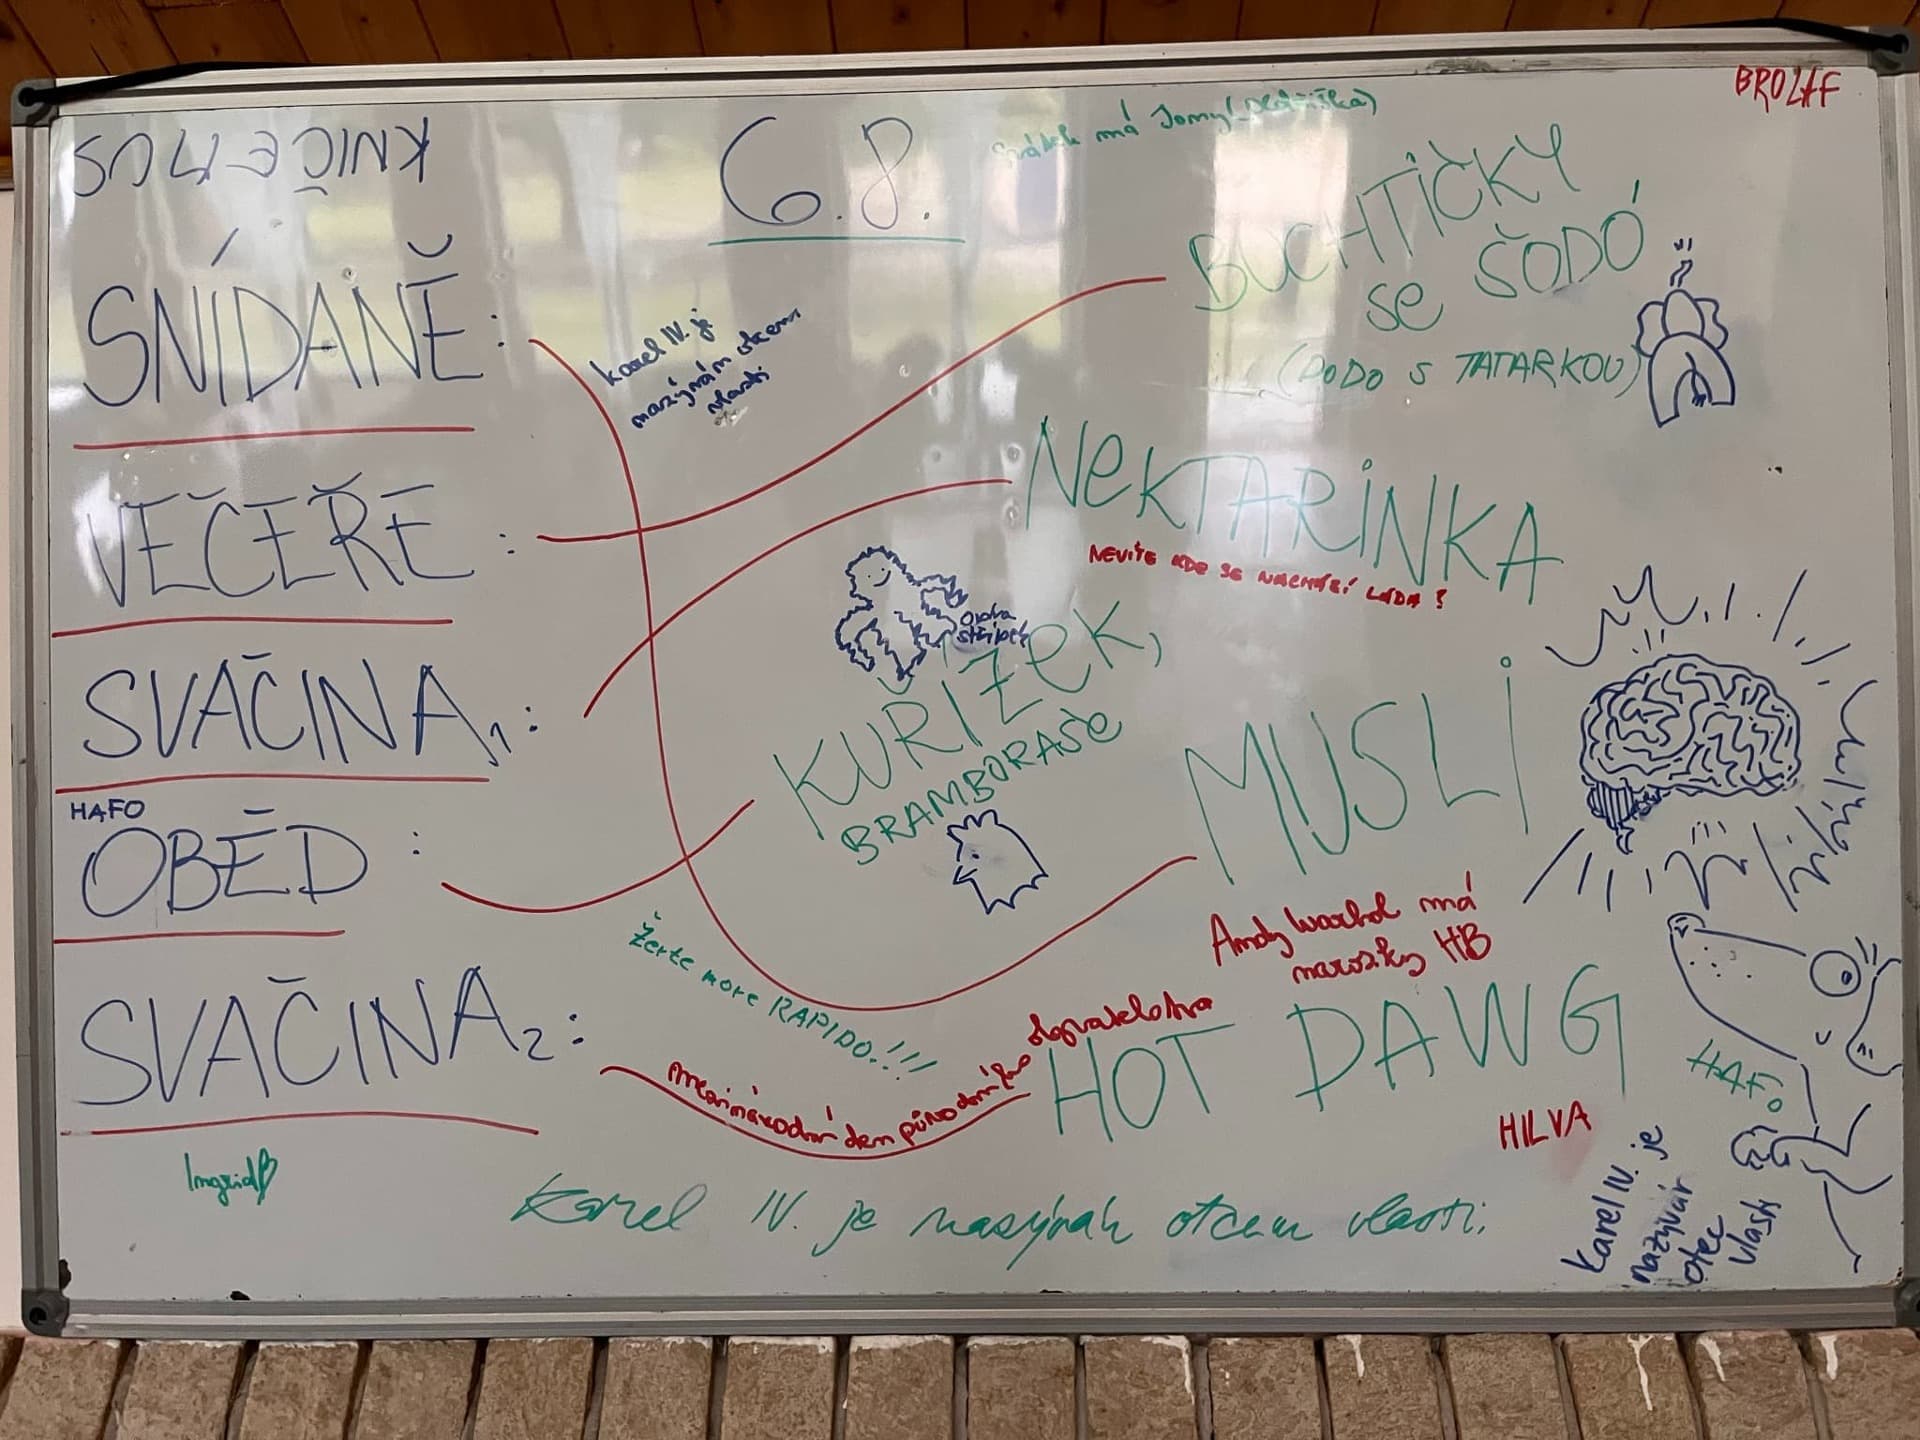 KNIČEMUS
6.8.
má
BROLAF
SNÍDANĚ:
Karel IV. je
nazýván otcem
vlasti
BUCHTIČKY
SE ŠODÓ
(DODO S TATARKOU)
VEČEŘE :
NEKTARINKA
NEVÍTE KDE SE NACHÁZÍ LÁĎA?
SVAČINA1:
KUŘÍZEK,
BRAMBORAŠE
MUSLI
HAFO
OBĚD :
Žerte more RAPIDO!!!
Andy Warhol má
HB
SVAČINA2:
Mezinárodní den původního
obyvatelstva
HOT DAWG
HAFO
HILVA
Ingrid B
Karel IV. je nazýván otcem vlasti.
Karel IV. je
nazýván
otec
vlasti